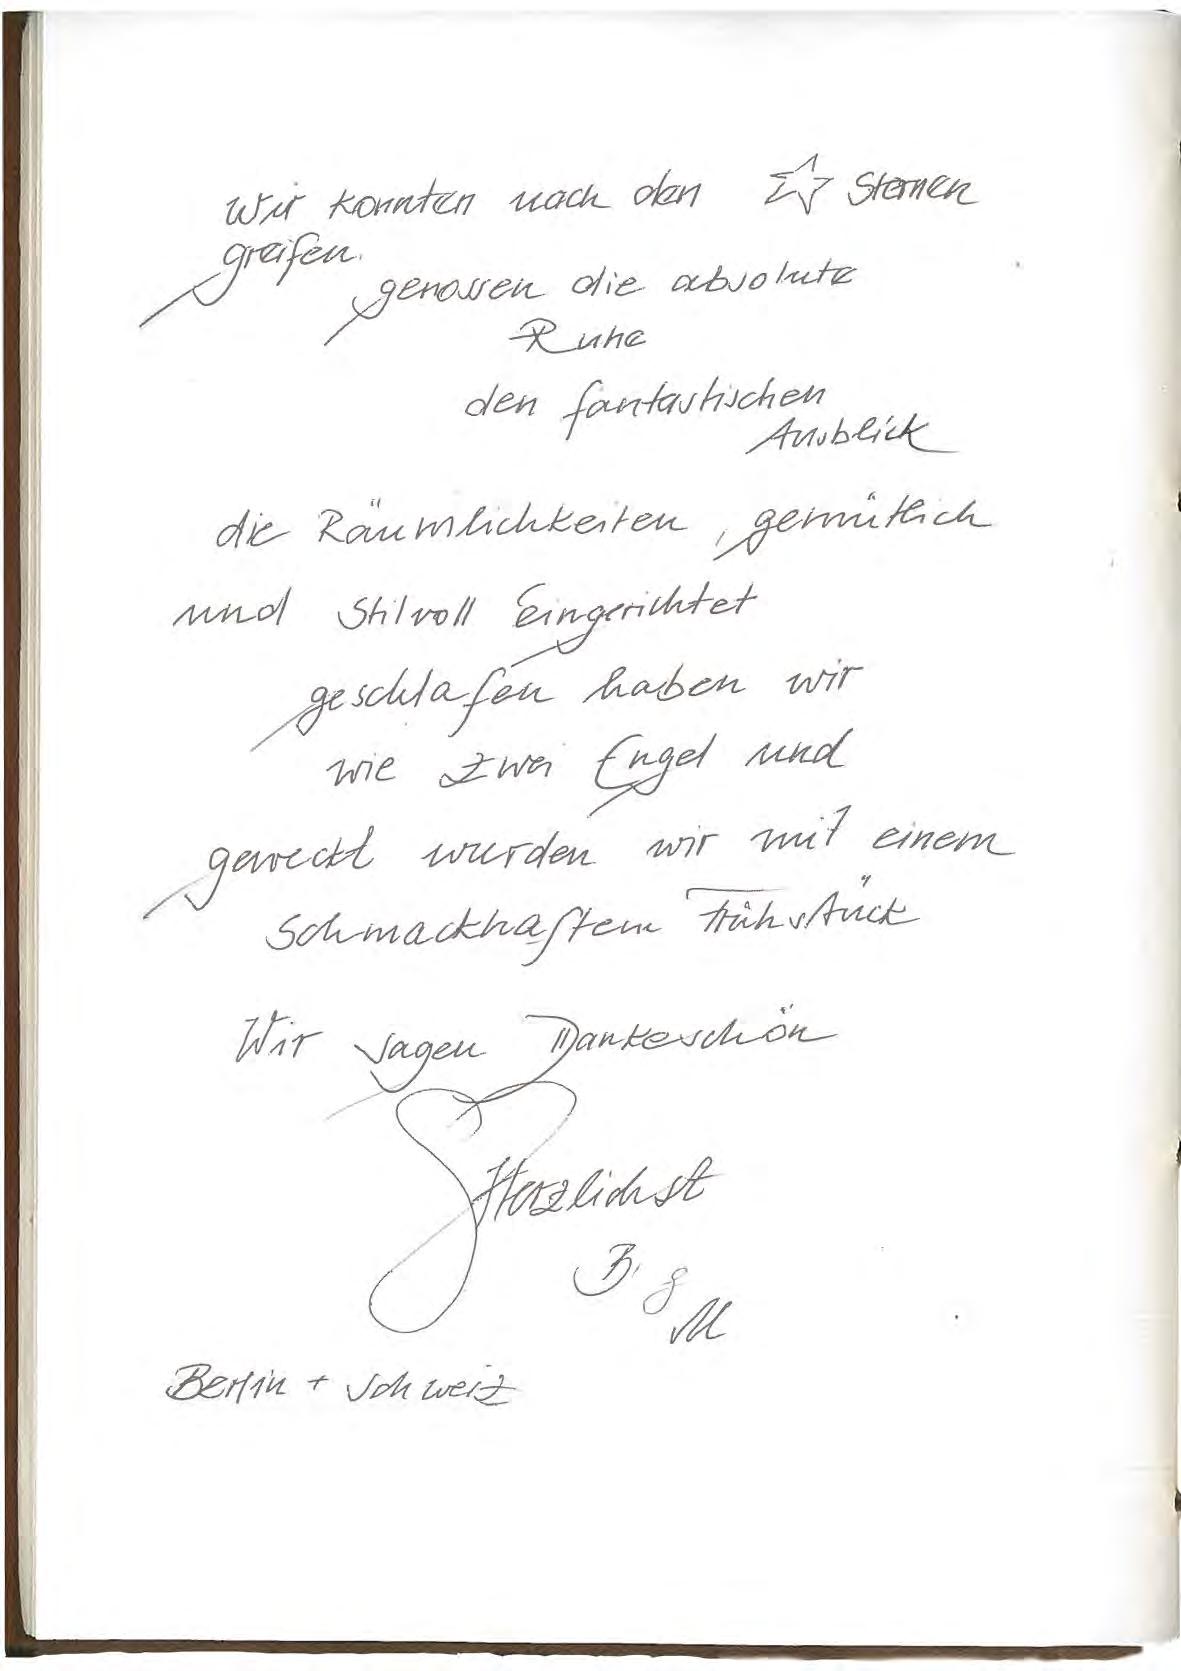 Wir konnten nach den ☆ Sternen
greifen.
genossen die absolute
Ruhe
den fantastischen
Ausblick
die Räumlichkeiten, gemütlich
und Stilvoll Eingerichtet
geschlafen haben wir
wie zwei Engel und
geweckt wurden wir mit einem
Schmackhaftem Frühstück
Wir sagen Dankeschön
Herzlichst
B. &
M
Berlin + Schweiz